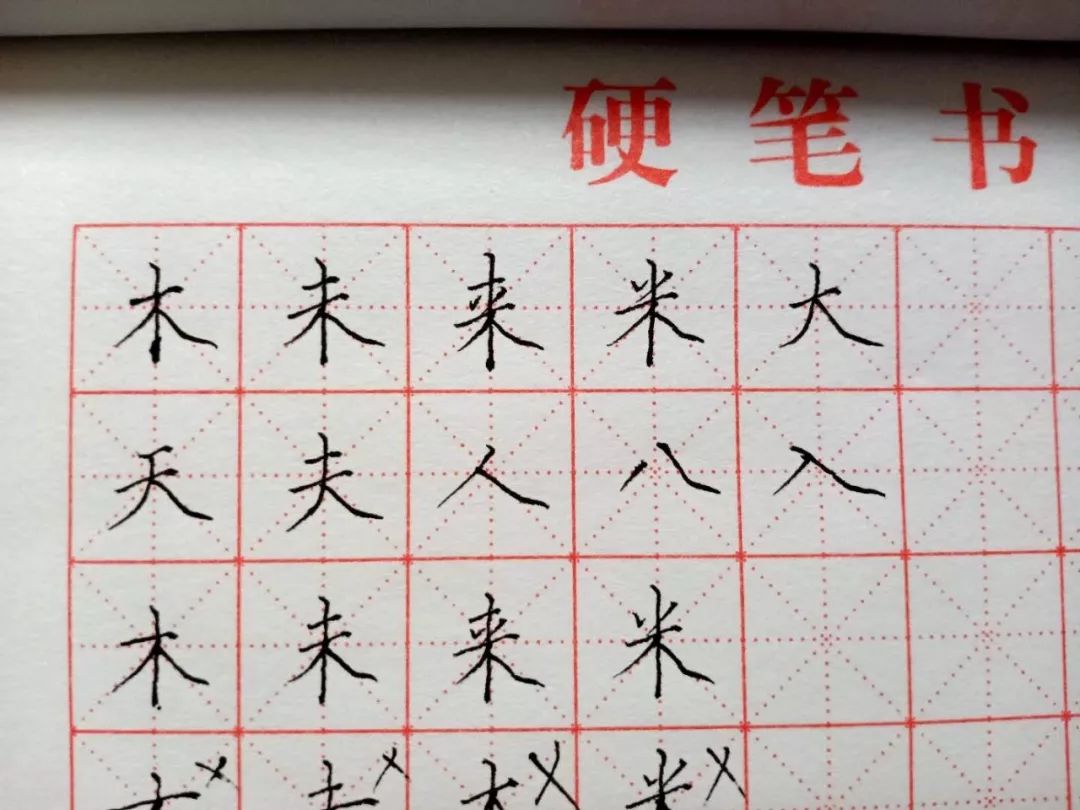 硬笔书
木未来米大
天夫人八入
木未来米